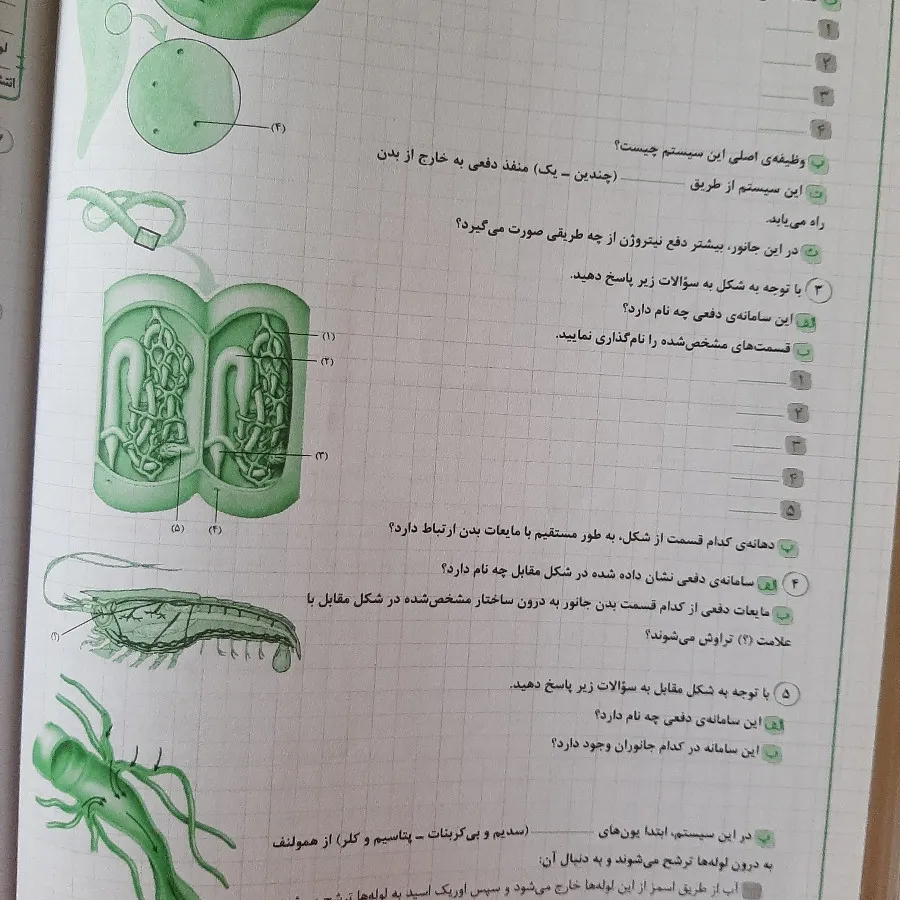 ۱
۲
۳
۴
(۴)
ب وظیفه‌ی اصلی این سیستم چیست؟
ت این سیستم از طریق ________ (چندین – یک) منفذ دفعی به خارج از بدن
راه می‌یابد.
ث در این جانور، بیشتر دفع نیتروژن از چه طریقی صورت می‌گیرد؟
۳ با توجه به شکل به سؤالات زیر پاسخ دهید.
الف این سامانه‌ی دفعی چه نام دارد؟
ب قسمت‌های مشخص‌شده را نام‌گذاری نمایید.
۱
۲
۳
۴
۵
(۱)
(۲)
(۳)
(۵) (۴)
پ دهانه‌ی کدام قسمت از شکل، به طور مستقیم با مایعات بدن ارتباط دارد؟
۴ الف سامانه‌ی دفعی نشان داده شده در شکل مقابل چه نام دارد؟
ب مایعات دفعی از کدام قسمت بدن جانور به درون ساختار مشخص‌شده در شکل مقابل با
علامت (؟) تراوش می‌شوند؟
(؟)
۵ با توجه به شکل مقابل به سؤالات زیر پاسخ دهید.
الف این سامانه‌ی دفعی چه نام دارد؟
ب این سامانه در کدام جانوران وجود دارد؟
پ در این سیستم، ابتدا یون‌های ________ (سدیم و بی‌کربنات – پتاسیم و کلر) از همولنف
به درون لوله‌ها ترشح می‌شوند و به دنبال آن:
آب از طریق اسمز از این لوله‌ها خارج می‌شود و سپس اوریک اسید به لوله‌ها ترشح